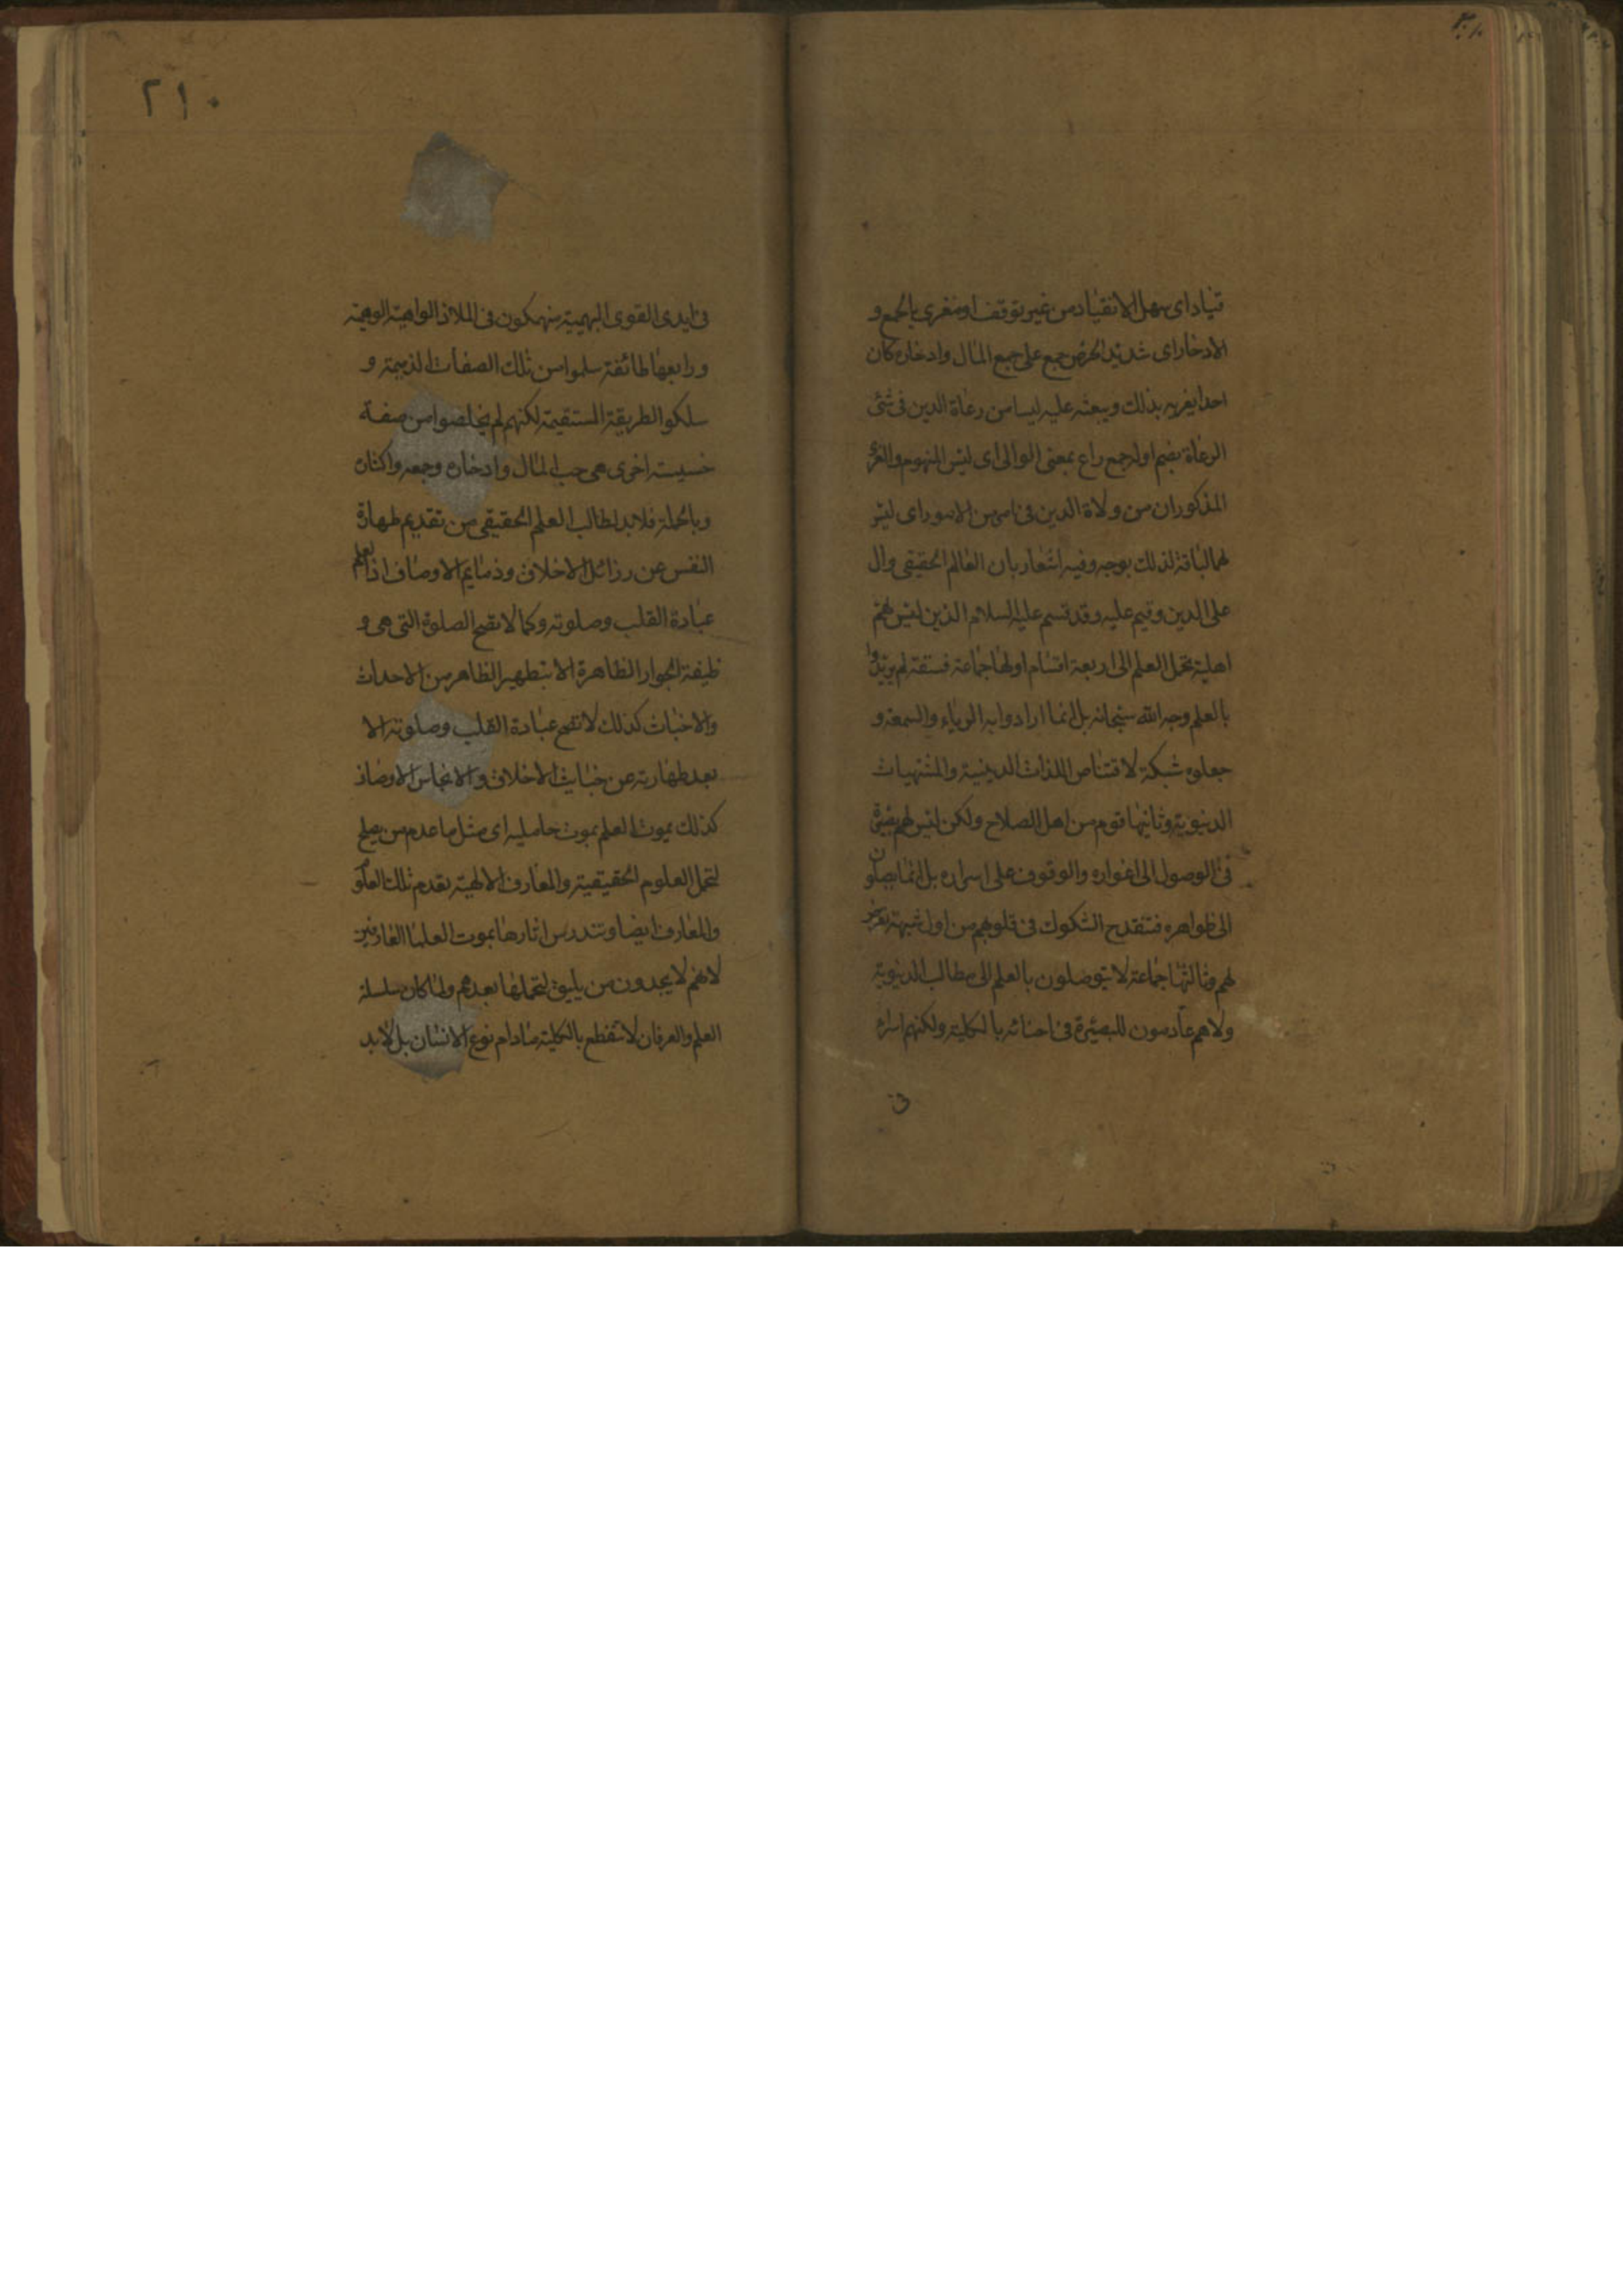 قياد اى سهل الانقياد من غير توقف او مغرى بالجمع و
الادخار اى شديد الحرص جمع على جمع المال وادخاره كان
احدا يغريه بذلك ويبعثه عليه ليسا من رعاة الدين فى شئى
الرعاة بضم اوله جمع راع بمعنى الوالى اى ليس المنهوم والمغرى
المذكوران من ولاة الدين فى امر من الامور اى ليس
لهما لياقة لذلك بوجه وفيه اشعار بان العالم الحقيقى وال
على الدين وقيم عليه وقد قسم عليه السلام الذين ليس لهم
اهلية تحمل العلم الى اربعة اقسام اولها جماعة فسقة لم يريدوا
بالعلم وجه الله سبحانه بل انما ارادوا به الرياء والسمعة و
جعلوه شبكة لاقتناص اللذات الدينية والمشتهيات
الدنيوية وثانيها قوم من اهل الصلاح ولكن ليس لهم بصيرة
فى الوصول الى اغواره والوقوف على اسراره بل انما يصلون
الى ظواهره فتنقدح الشكوك فى قلوبهم من اول شبهة تعرض
لهم وثالثها جماعة لا يتوصلون بالعلم الى مطالب الدنيوية
ولا هم عادمون للبصيرة فى احنائه بالكلية ولكنهم اسراء
فى
٢١٠
فى ايدى القوى البهيمية منهمكون فى الملاذ الواهية الوهمية
ورابعها طائفة سلموا من تلك الصفات الذميمة و
سلكو الطريقة المستقيمة لكنهم لم يخلصوا من صفة
خسيسة اخرى هى حب المال وادخاره وجمعه واكثاره
وبالجملة فلا بد لطالب العلم الحقيقى من تقديم طهارة
النفس عن رزائل الاخلاق وذمايم الاوصاف اذ العلم
عبادة القلب وصلوته وكما لا تصح الصلوة التى هى و
ظيفة الجوار الظاهرة الا بتطهير الظاهر من الاحداث
والاخباث كذلك لا تصح عبادة القلب وصلوته الا
بعد طهارته عن خبايث الاخلاق والانجاس الاوصاف
كذلك يموت العلم بموت حامليه اى مثل ما عدم من يصلح
لتحمل العلوم الحقيقية والمعارف الالهية تعدم تلك العلوم
والمعارف ايضا وتندرس اثارها بموت العلماء العارفين
لانهم لا يجدون من يليق لتحملها بعدهم ولما كان سلسلة
العلم والعرفان لا تنقطع بالكلية مادام نوع الانسان بل لا بد